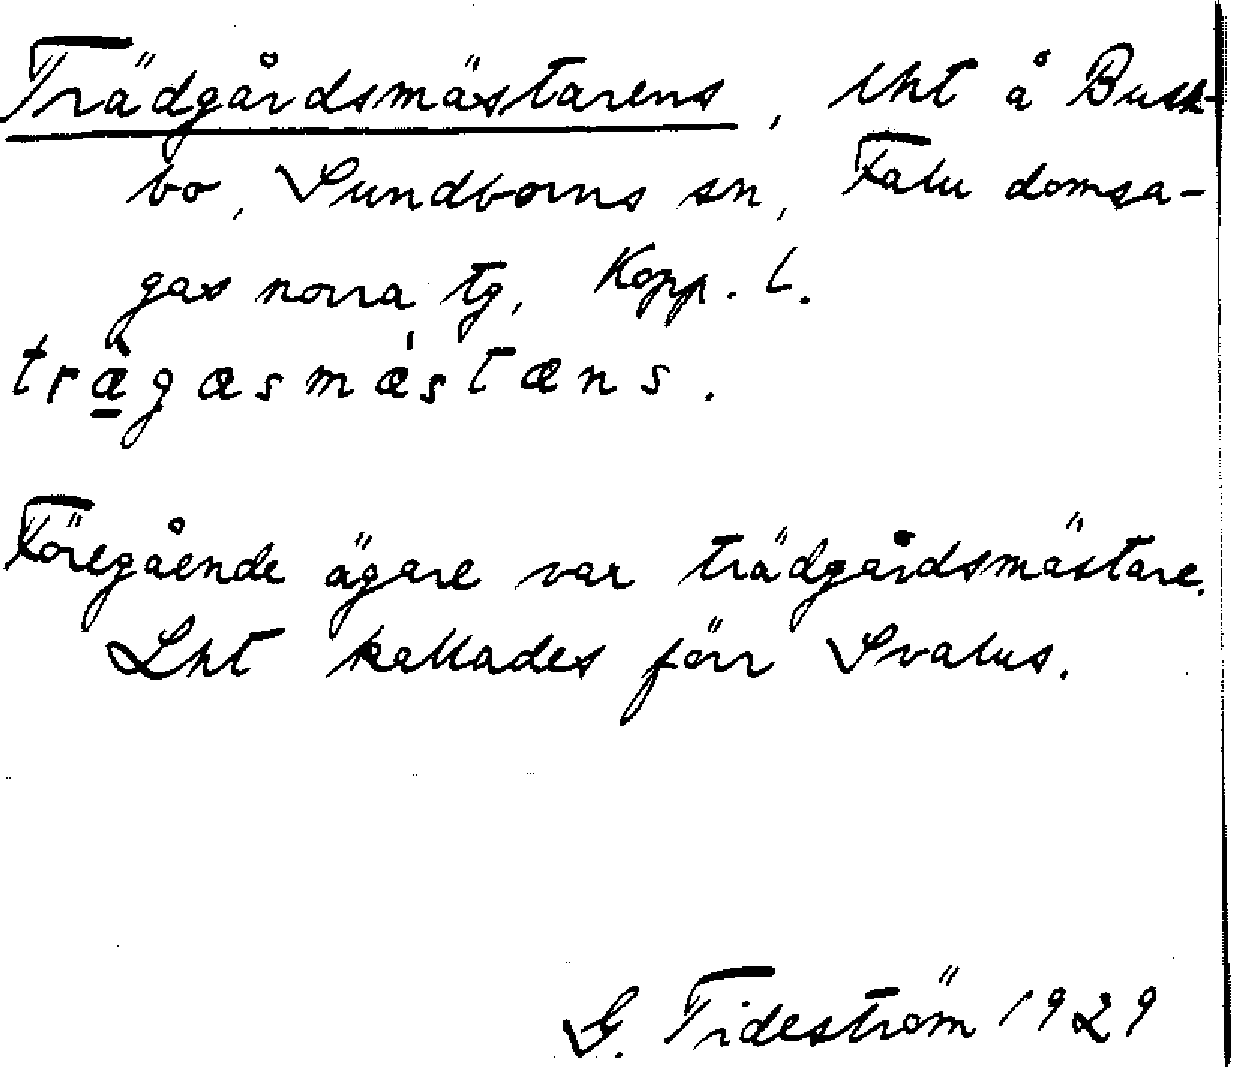 Trädgårdsmästarens, lht å Busk-
bo, Sundborns sn, Falu domsa-
gas norra tg, Kopp. l.
trægæsmæstæns.
Föregående ägare var trädgårdsmästare.
Lht kallades förr Svalus.
G. Tideström 1929